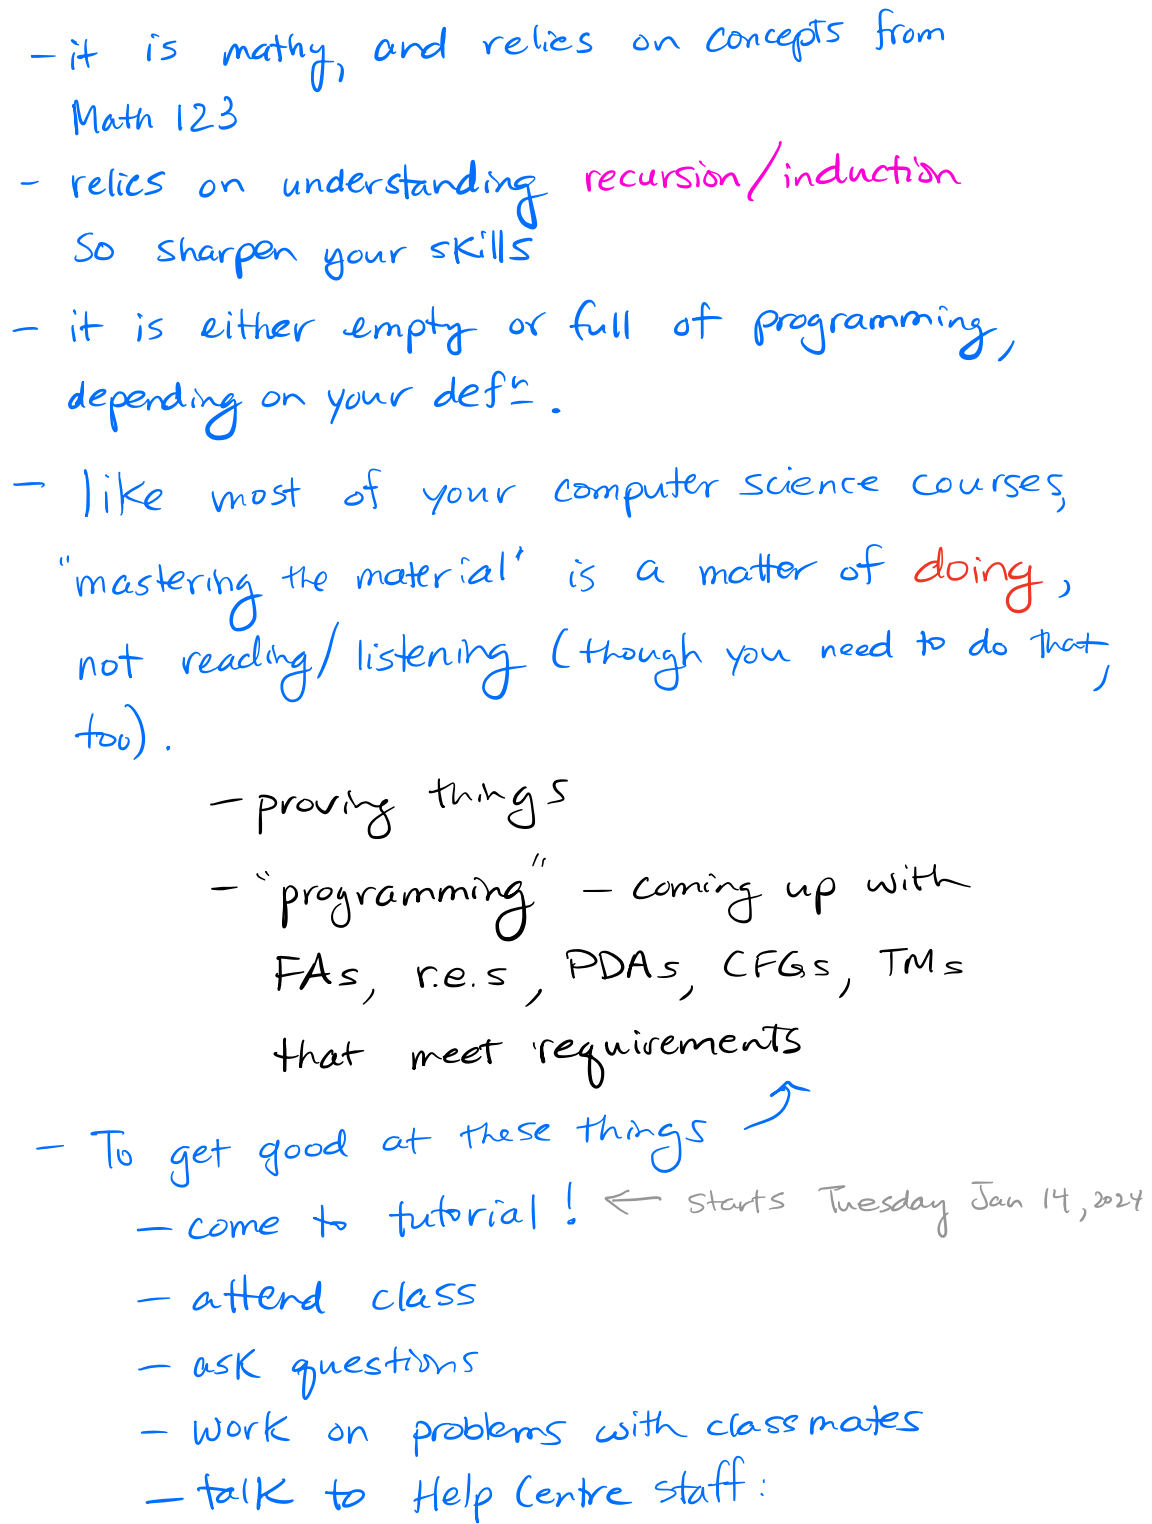 - it is mathy, and relies on concepts from
Math 123
- relies on understanding recursion/induction
So sharpen your skills
- it is either empty or full of programming,
depending on your defn.
- like most of your computer science courses,
"mastering the material" is a matter of doing,
not reading/listening (though you need to do that,
too).
- proving things
- "programming" - coming up with
FAs, r.e.s, PDAs, CFGs, TMs
that meet requirements
- To get good at these things
- come to tutorial! ← starts Tuesday Jan 14, 2024
- attend class
- ask questions
- work on problems with classmates
- talk to Help Centre staff: